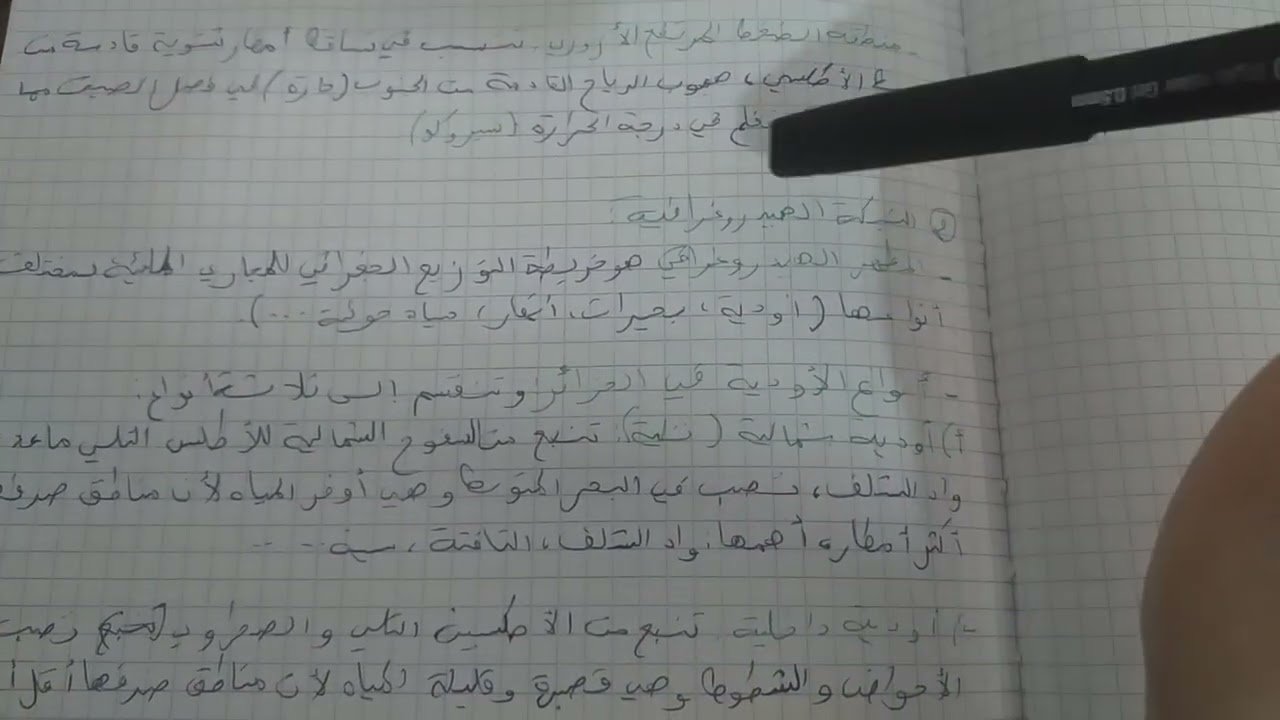 منطقة الضغط المرتفع الأزوري تسبب في تساقط أمطار شتوية قادمة من
الأطلسي، هبوب الرياح القادمة من الجنوب (حارة) في فصل الصيف مما
في درجة الحرارة (سيروكو)
② الشبكة الهيدروغرافية:
- المظهر الهيدروغرافي هو خريطة التوزيع الجغرافي للمجاري المائية بمختلف
أنواعها (أودية، بحيرات، أنهار، مياه جوفية ...).
- أنواع الأودية في الجزائر وتنقسم إلى ثلاثة أنواع:
أ) أودية شمالية (تلية)، تنبع من السفوح الشمالية للأطلس التلي ماعد
واد الشلف، تصب في البحر المتوسط وهي أوفر المياه لأن مناطق صرفها
أكثر أمطار، أهمها: واد الشلف، التافنة، سيبو ...
ب) أودية داخلية تنبع من الأطلسين التلي والصحراوي تصب
الأحواض والشطوط وهي قصيرة وقليلة المياه لأن مناطق صرفها أقل أ